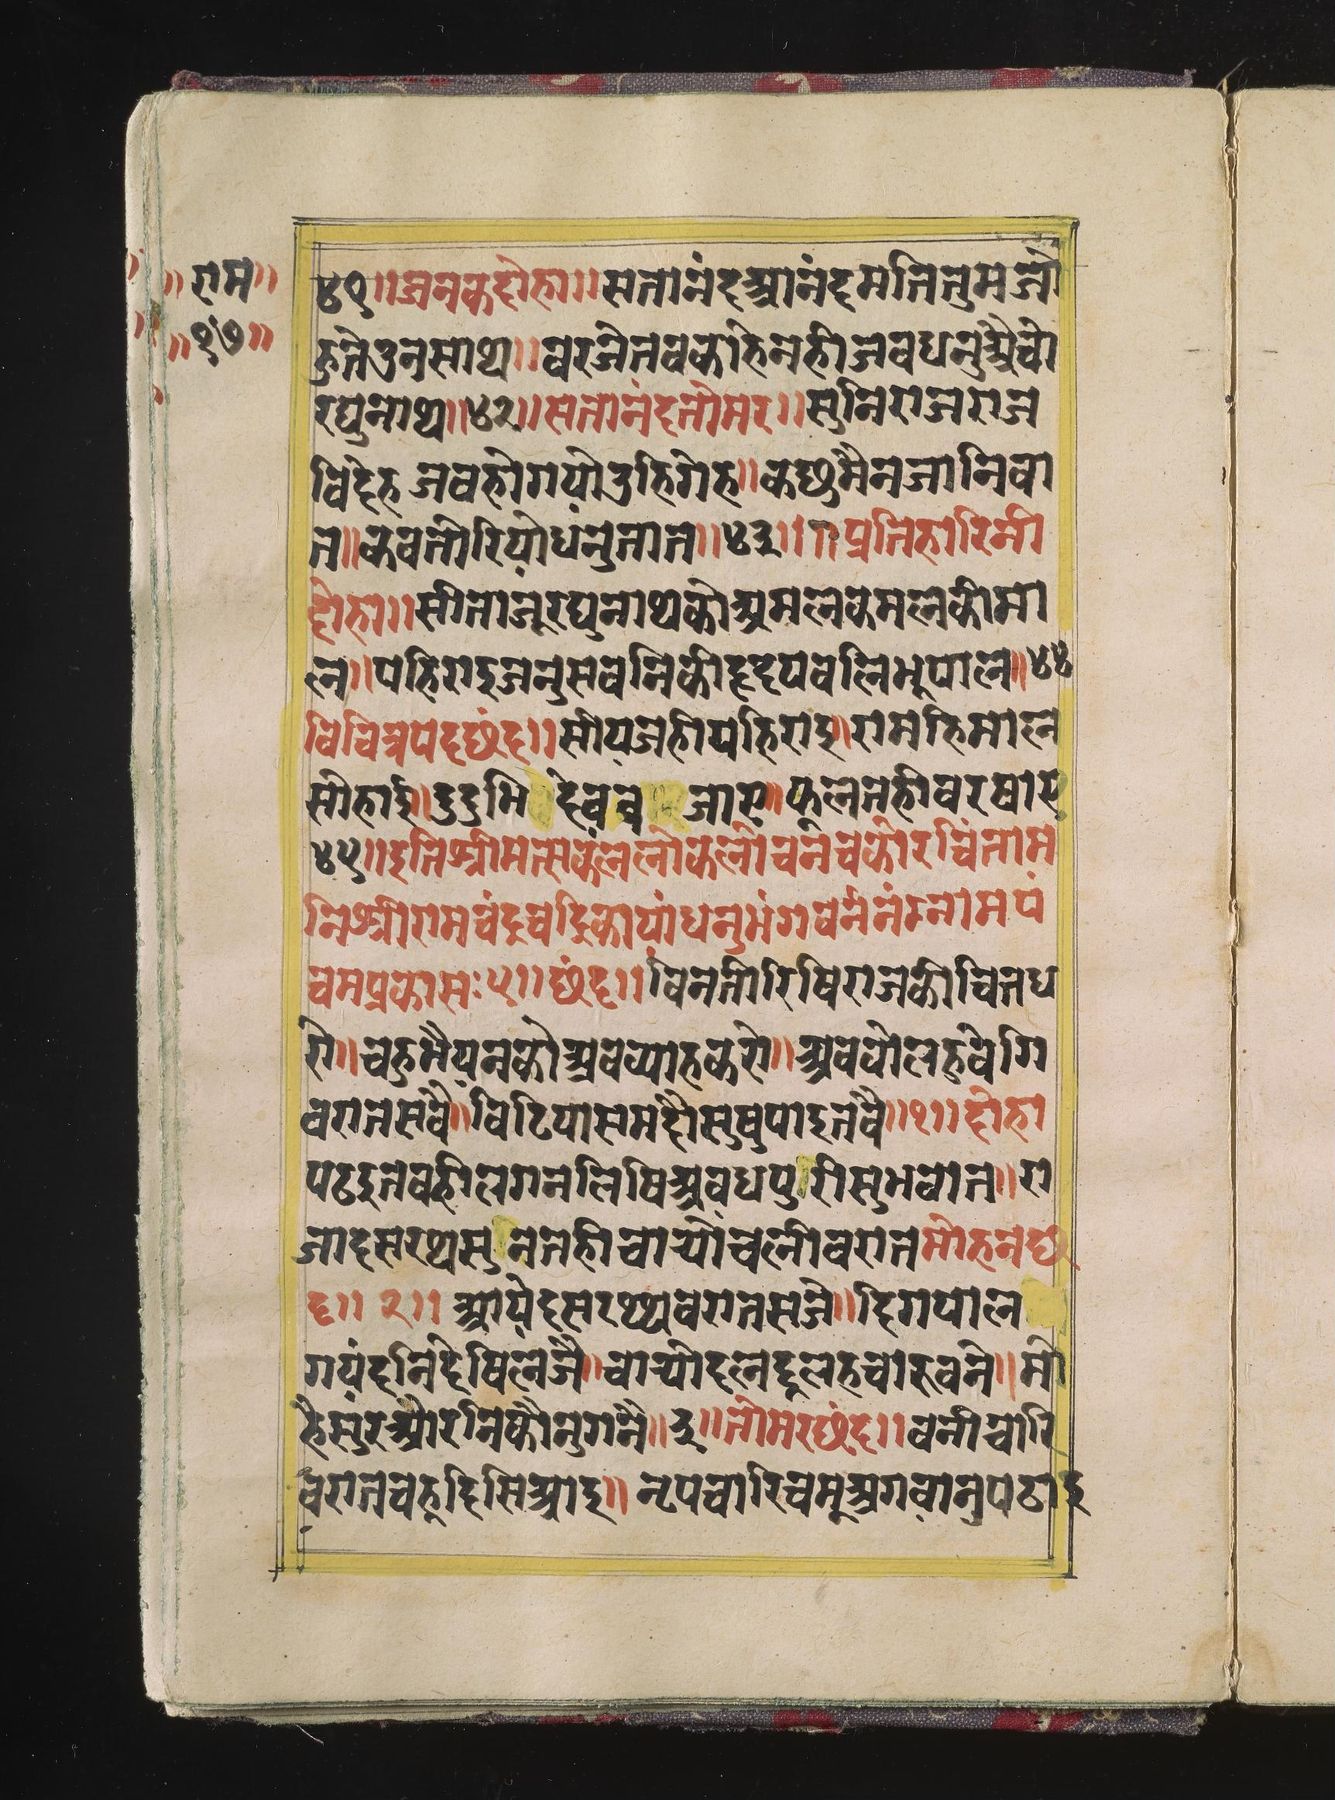 ॥राम॥
॥१७॥
४१॥जनकदोहा॥सतानंदआनंदमतितुमजो
हुतेउनसाथ॥बरजेनबकाहेनहीजबधनुअैचो
रघुनाथ॥४२॥सतानंदतोमर॥सुनिराजराज
बिदेह जबहोगयोउहिगेह॥कछुमैनजानिबा
त॥कबतोरियोधनुतात॥४३॥॥प्रतिहारिनी
दोहा॥सीताजूरघुनाथकोअमलकमलकीमा
ल॥पहिराइजनुसबनिकीहृदयबलिभूपाल॥४४
बिचित्रपदछंद॥सीयजहीपहिराइ॥रामहिमाल
सोहाई॥दुदुभि देवब जाए॥फूलतहीबरषाए
४५॥इतिश्रीमत्सकललोकलोचनचकोरचिंताम
निश्रीरामचंद्रचद्रिकायांधनुभंगबर्ननंम्नामपं
चमप्रकासः५॥छंद॥बिनतीरिषिराजकीचितध
रो॥चहुभैयनकोअबब्याहकरो॥अबबोलहुबेगि
बरातसबै॥बिटियासमदौसुषुपाइतबै॥१॥दोहा
पठइतबहीलगनलिषिअवधपुरीसुभबात॥रा
जादसरथसु नतहीचार्योचलीबरातमोहनछं
द॥२॥ आयेदसरथ्थबरातसजे॥दिगपाल
गयंदनिदेषिलजै॥चार्योदलदूलहचारुबने॥मो
हेसुरऔरनिकौनुगनै॥३॥तोमरछंद॥बनीचारि
बरातचहूदिसिआइ॥नृपचारिचमूअगवानुपठाइ